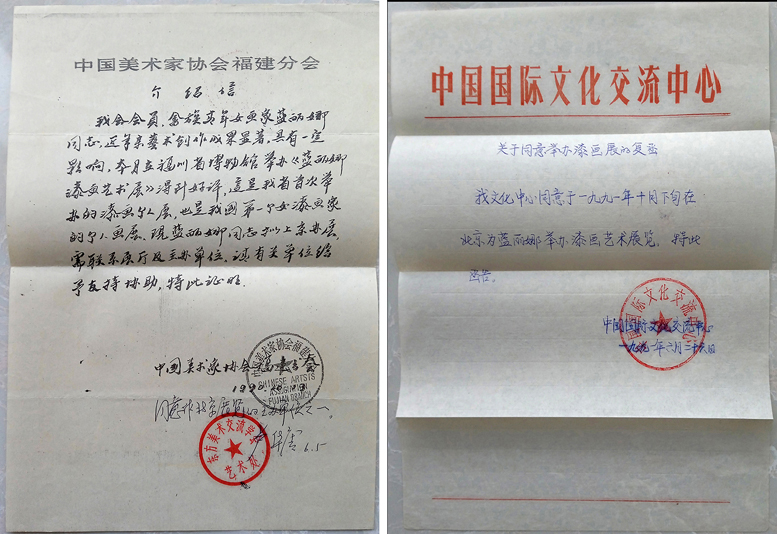 中国美术家协会福建分会
介绍信
我会会员、畲族青年女画家蓝丽娜
同志,近年来艺术创作成果显著,具有一定
影响,本月在福州省博物馆举办《蓝丽娜
漆画艺术展》得到好评,这是我省首次举
办的漆画个人展,也是我国第一个女漆画家
的个人画展。现蓝丽娜同志拟上京办展,
需联系展厅及主办单位,请有关单位给
予支持协助,特此证明。
中国美术家协会福建分会
中国美术家协会福建分会
CHINESE ARTISTS
ASSOCIATION
FUJIAN BRANCH
同意作北京展览的主办单位之一。
东方美术交流学会
艺术处
6.5
中国国际文化交流中心
关于同意举办漆画展的复函
我文化中心同意于一九九一年十月下旬在
北京为蓝丽娜举办漆画艺术展览。特此
函告。
中国国际文化交流中心
中国国际文化交流中心
一九九一年六月二十六日